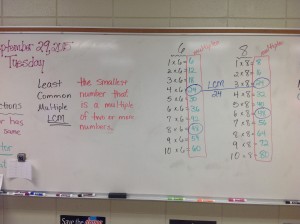 September 29, 2015
Tuesday
Least the smallest
Common number that
Multiple is a multiple
LCM of two or more
numbers.
ctions
r has
same
6
multiples
1 x 6 = 6
2 x 6 = 12
3 x 6 = 18
4 x 6 = 24
5 x 6 = 30
6 x 6 = 36
7 x 6 = 42
8 x 6 = 48
9 x 6 = 54
10 x 6 = 60
LCM
24
8
multiples
1 x 8 = 8
2 x 8 = 16
3 x 8 = 24
4 x 8 = 32
5 x 8 = 40
6 x 8 = 48
7 x 8 = 56
8 x 8 = 64
9 x 8 = 72
10 x 8 = 80
Save the